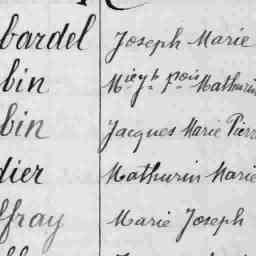 bardel Joseph Marie
bin Mathurin
bin Jacques Marie Pierr
dier Mathurin Marie
ffray Marie Joseph